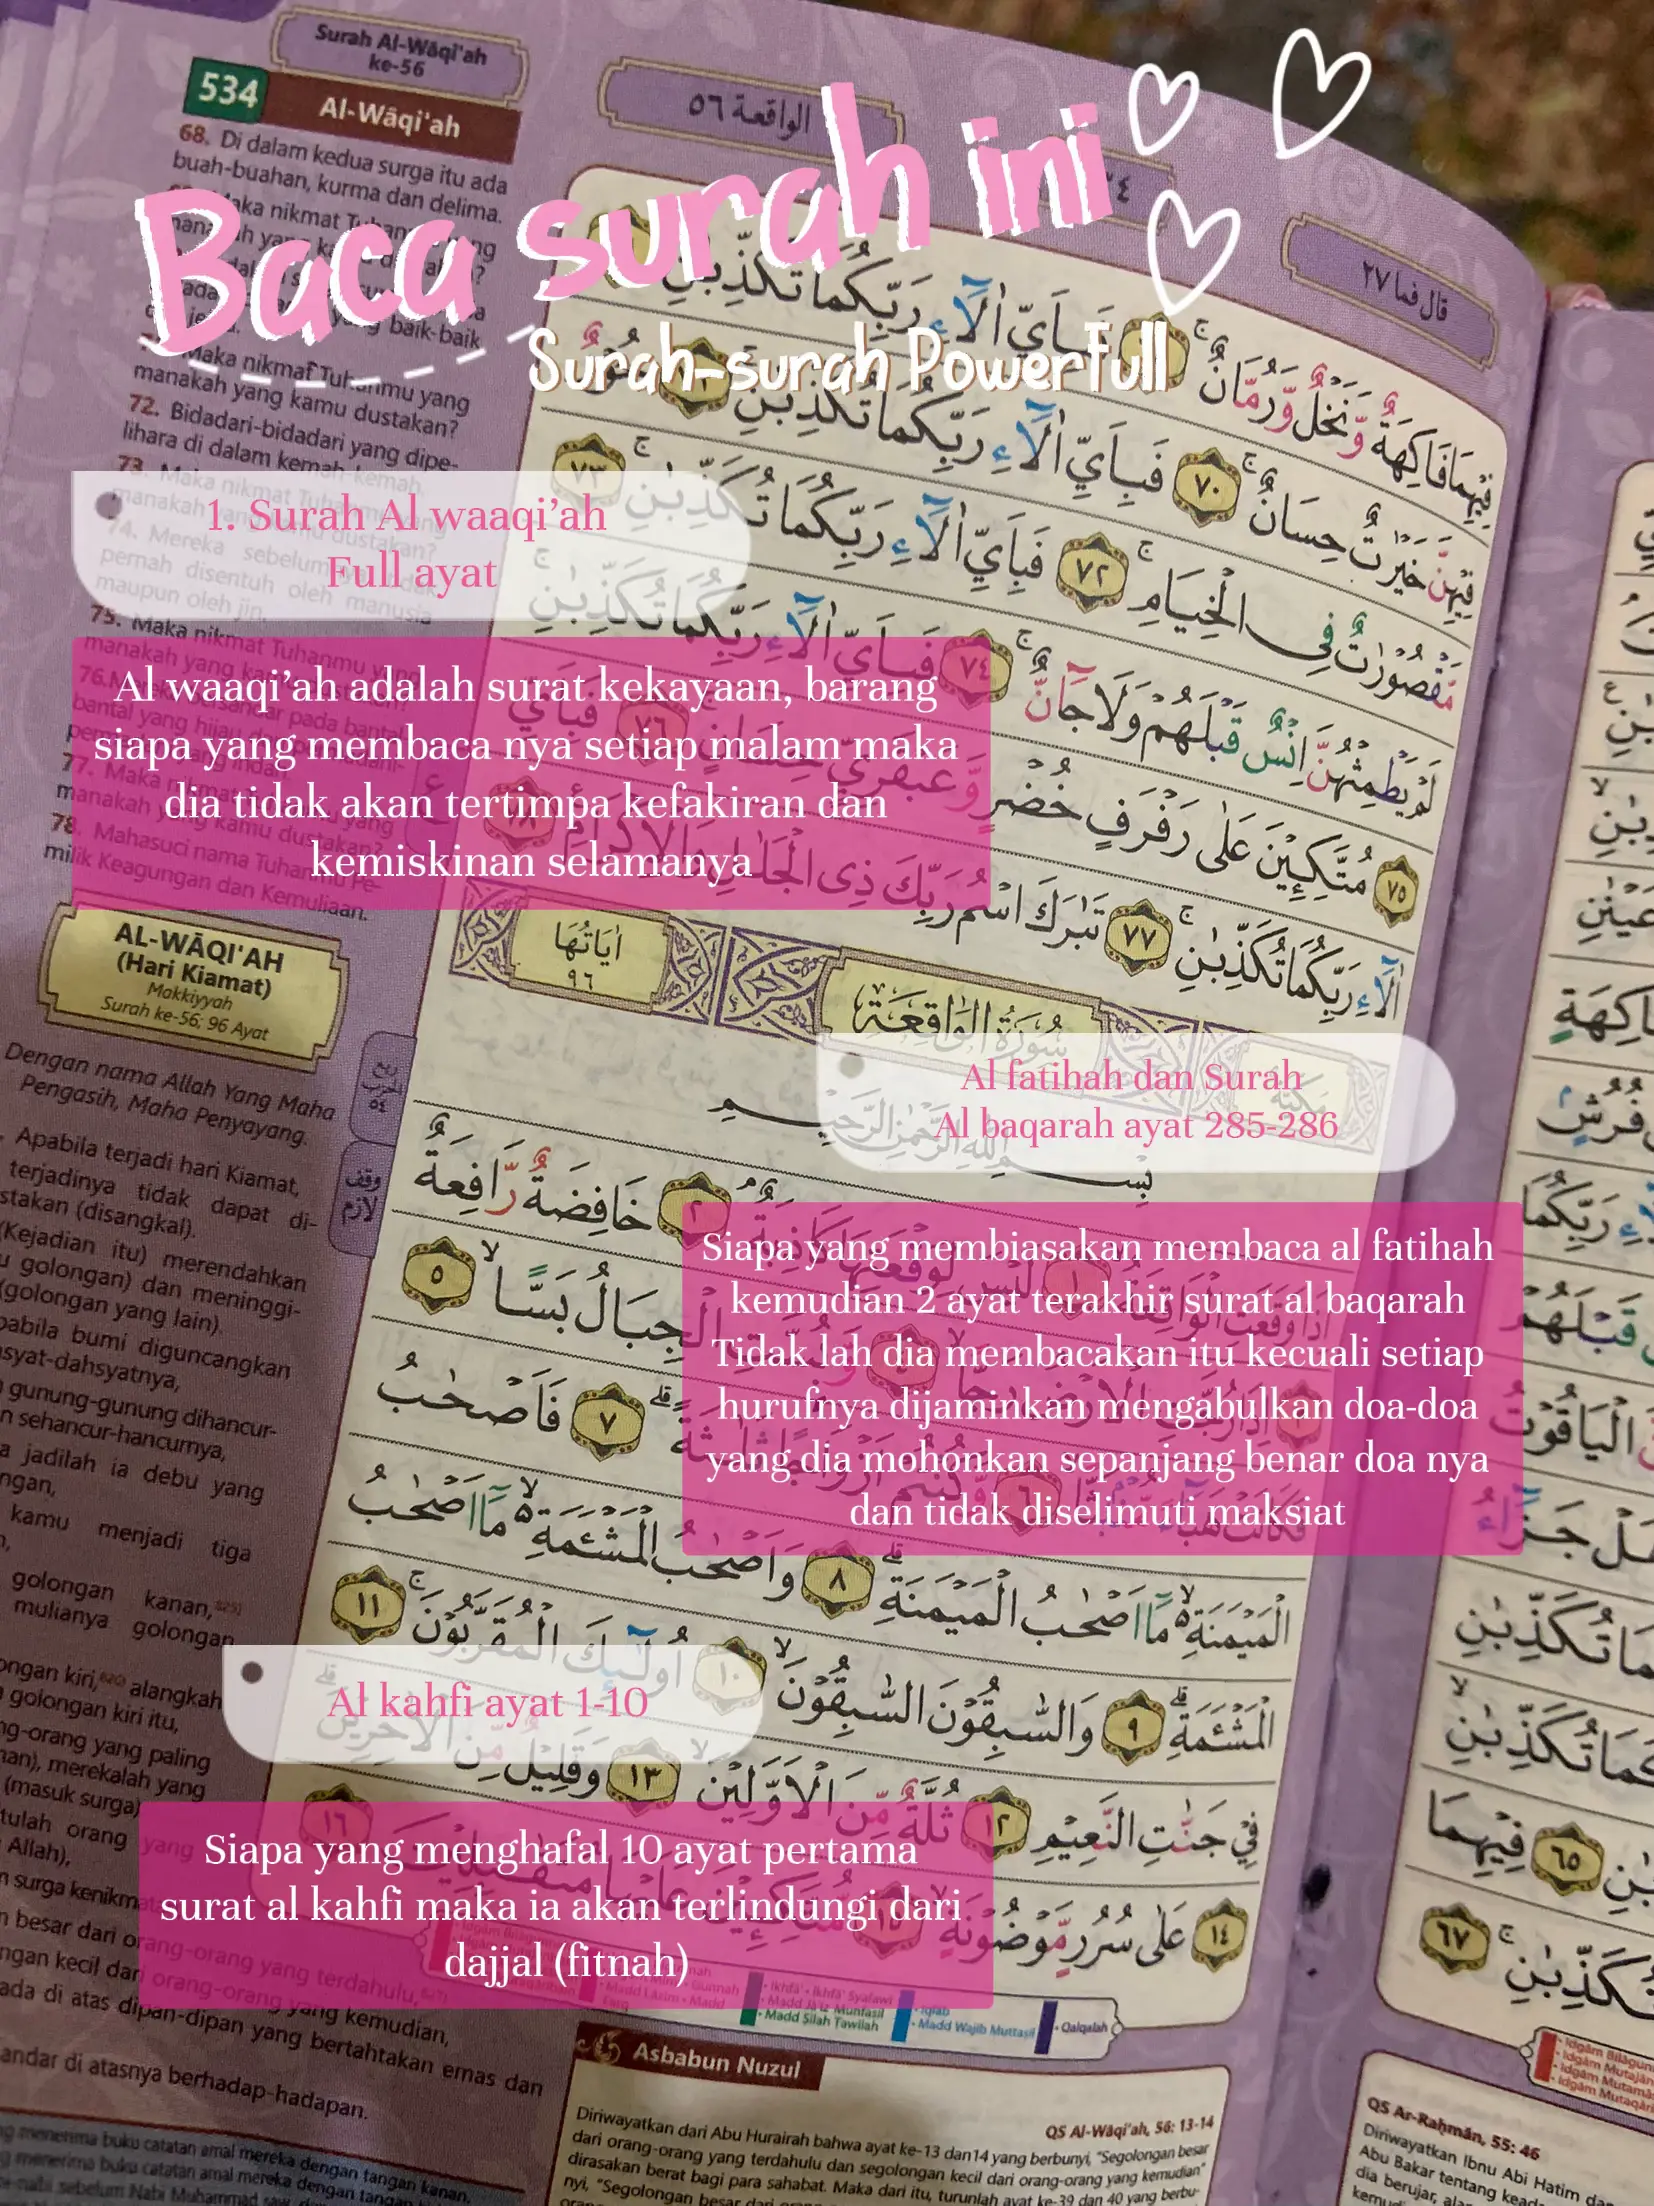 Surah Al-Wāqi'ah
ke-56
534
Al-Wāqi'ah
الواقعة ٥٦
قال فما ٢٧
Baca surah ini
Surah-surah Powerfull
68. Di dalam kedua surga itu ada
buah-buahan, kurma dan delima.
baik-baik
Maka nikmat Tuhanmu yang
manakah yang kamu dustakan?
72. Bidadari-bidadari yang dipe-
lihara di dalam kemah-kemah.
73. Maka nikmat Tuhanmu yang
manakah yang kamu dustakan?
74. Mereka sebelumnya tidak
pernah disentuh oleh manusia
maupun oleh jin.
75. Maka nikmat Tuhanmu yang
manakah yang kamu
77. Maka nikmat Tuhanmu yang
manakah yang kamu dustakan?
78. Mahasuci nama Tuhanmu Pe-
milik Keagungan dan Kemuliaan.
1. Surah Al waaqi’ah
Full ayat
Al waaqi’ah adalah surat kekayaan, barang
siapa yang membaca nya setiap malam maka
dia tidak akan tertimpa kefakiran dan
kemiskinan selamanya
فِيْهِمَا فَاكِهَةٌ وَّنَخْلٌ وَّرُمَّانٌ
فَبِاَيِّ اٰلَاۤءِ رَبِّكُمَا تُكَذِّبٰنِ
فِيْهِنَّ خَيْرٰتٌ حِسَانٌ ٧٠ فَبِاَيِّ اٰلَاۤءِ رَبِّكُمَا تُكَذِّبٰنِ
مَّقْصُوْرٰتٌ فِى الْخِيَامِ ٧٢ فَبِاَيِّ اٰلَاۤءِ رَبِّكُمَا تُكَذِّبٰنِ ٧٣
لَمْ يَطْمِثْهُنَّ اِنْسٌ قَبْلَهُمْ وَلَا جَاۤنٌّ ٧٤ فَبِاَيِّ اٰلَاۤءِ رَبِّكُمَا تُكَذِّبٰنِ
٧٥ مُتَّكِـِٕيْنَ عَلٰى رَفْرَفٍ خُضْرٍ وَّعَبْقَرِيٍّ حِسَانٍ ٧٦ فَبِاَيِّ
اٰلَاۤءِ رَبِّكُمَا تُكَذِّبٰنِ ٧٧ تَبٰرَكَ اسْمُ رَبِّكَ ذِى الْجَلٰلِ وَالْاِكْرَامِ ٧٨
AL-WĀQI'AH
(Hari Kiamat)
Makkiyyah
Surah ke-56; 96 Ayat
اٰيَاتُهَا
٩٦
سُوْرَةُ الْوَاقِعَةِ
مَكِّيَّة
بِسْمِ اللّٰهِ الرَّحْمٰنِ الرَّحِيْمِ
Al fatihah dan Surah
Al baqarah ayat 285-286
Siapa yang membiasakan membaca al fatihah
kemudian 2 ayat terakhir surat al baqarah
Tidak lah dia membacakan itu kecuali setiap
hurufnya dijaminkan mengabulkan doa-doa
yang dia mohonkan sepanjang benar doa nya
dan tidak diselimuti maksiat
Dengan nama Allah Yang Maha
Pengasih, Maha Penyayang.
Apabila terjadi hari Kiamat,
terjadinya tidak dapat di-
stakan (disangkal).
(Kejadian itu) merendahkan
golongan) dan meninggi-
(golongan yang lain).
pabila bumi diguncangkan
syat-dahsyatnya,
gunung-gunung dihancur-
n sehancur-hancurnya,
a jadilah ia debu yang
ngan,
kamu menjadi tiga
golongan kanan,
mulianya golongan
ongan kiri, alangkah
golongan kiri itu,
ng-orang yang paling
merekalah yang
(masuk surga)
tulah orang yang
Allah),
n surga kenikmatan
n besar dari orang-orang yang terdahulu,
ngan kecil dari orang-orang yang kemudian,
ada di atas dipan-dipan yang bertahtakan emas dan
andar di atasnya berhadap-hadapan.
اِذَا وَقَعَتِ الْوَاقِعَةُ ١ لَيْسَ لِوَقْعَتِهَا كَاذِبَةٌ ٢ خَافِضَةٌ رَّافِعَةٌ
اِذَا رُجَّتِ الْاَرْضُ رَجًّا ٤ وَّبُسَّتِ الْجِبَالُ بَسًّا ٥
فَكَانَتْ هَبَاۤءً مُّنْۢبَثًّا ٦ وَّكُنْتُمْ اَزْوَاجًا ثَلٰثَةً ٧ فَاَصْحٰبُ
الْمَيْمَنَةِ مَآ اَصْحٰبُ الْمَيْمَنَةِ ٨ وَاَصْحٰبُ الْمَشْـَٔمَةِ مَآ اَصْحٰبُ
الْمَشْـَٔمَةِ ٩ وَالسّٰبِقُوْنَ السّٰبِقُوْنَ ١٠ اُولٰۤىِٕكَ الْمُقَرَّبُوْنَ ١١
فِيْ جَنّٰتِ النَّعِيْمِ ١٢ ثُلَّةٌ مِّنَ الْاَوَّلِيْنَ ١٣ وَقَلِيْلٌ مِّنَ الْاٰخِرِيْنَ
١٤ عَلٰى سُرُرٍ مَّوْضُوْنَةٍ ١٥ مُّتَّكِـِٕيْنَ عَلَيْهَا مُتَقٰبِلِيْنَ ١٦
Al kahfi ayat 1-10
Siapa yang menghafal 10 ayat pertama
surat al kahfi maka ia akan terlindungi dari
dajjal (fitnah)
• Ikhfā' • Ikhfā' Syafawi
• Madd Jā'iz Munfasil
• Madd Silah Tawilah
• Iqlāb
• Madd Wajib Muttasil
• Qalqalah
Asbabun Nuzul
QS Al-Wāqi'ah, 56: 13-14
Diriwayatkan dari Abu Hurairah bahwa ayat ke-13 dan14 yang berbunyi, "Segolongan besar
dari orang-orang yang terdahulu dan segolongan kecil dari orang-orang yang kemudian"
dirasakan berat bagi para sahabat. Maka dari itu, turunlah ayat ke-39 dan 40 yang berbu-
nyi, "Segolongan besar dari
menerima buku catatan amal mereka dengan tangan kanan.
QS Ar-Raḥmān, 55: 46
Diriwayatkan Ibnu Abi Hatim
Abu Bakar tentang
dia berujar,
٦٥ فِيْهِمَا
٦٧